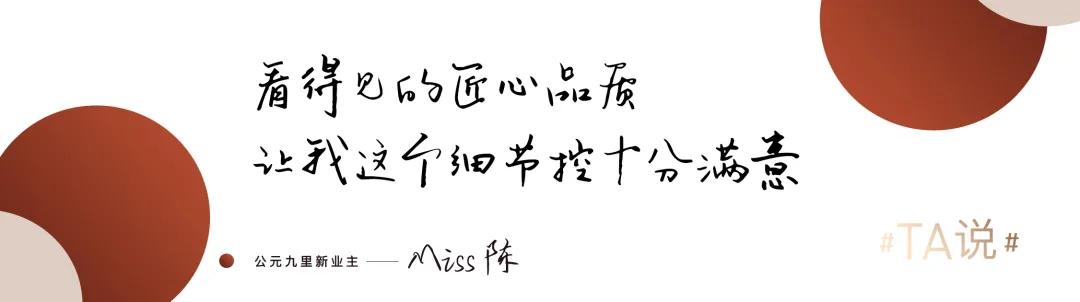 看得见的匠心品质
让我这个细节控十分满意
公元九里新业主 —— Miss 陈
#TA说#